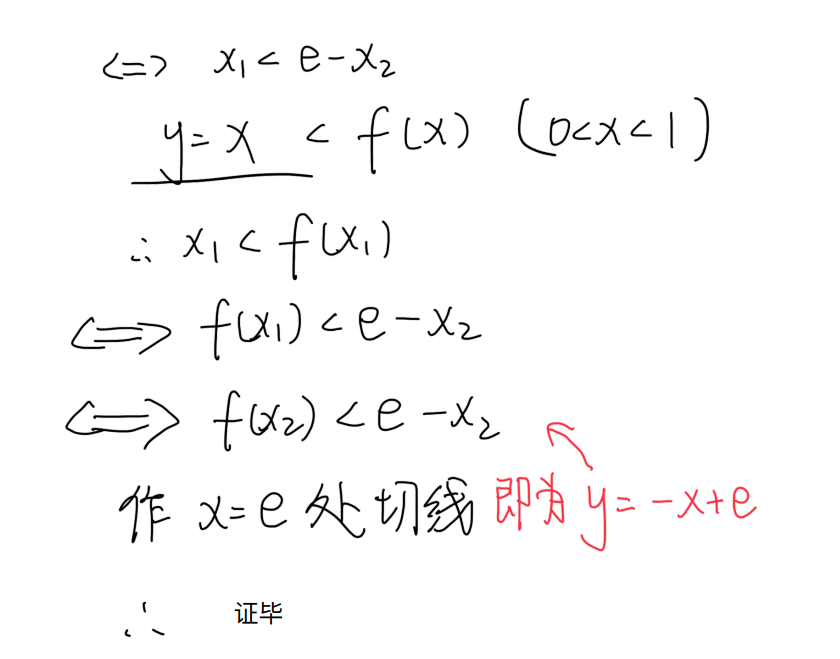 <=> x₁ < e-x₂
y=x < f(x) (0<x<1)
∴ x₁ < f(x₁)
<=> f(x₁) < e-x₂
<=> f(x₂) < e-x₂
作 x=e 处切线 即为 y=-x+e
∴ 证毕